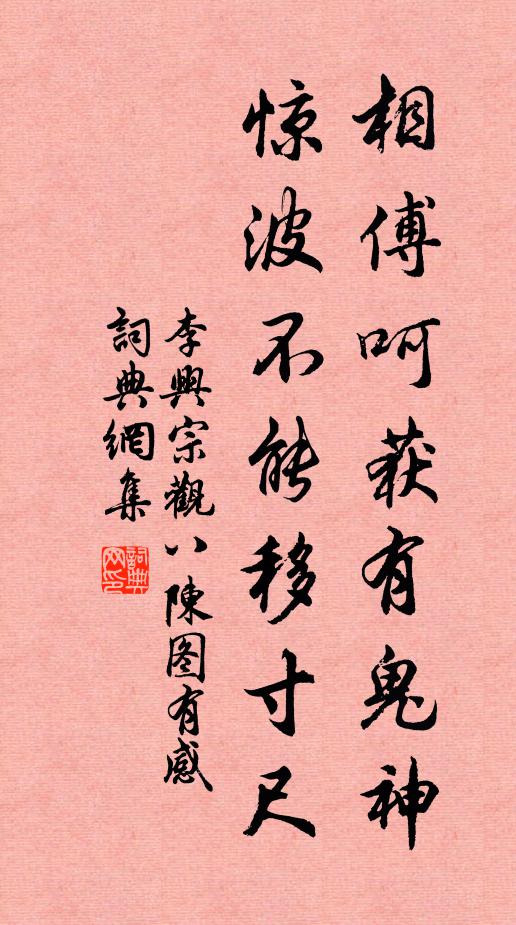 相傅呵获有鬼神
惊波不能移寸尺
李興宗觀八陳图有感
詞典網集
詞典
网印